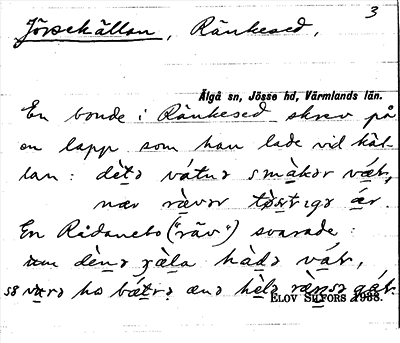 3
Jössekällan, Ränkesed,
Älgå sn, Jösse hd, Värmlands län.
En bonde i Ränkesed skrev på
en lapp som han lade vid käl-
lan: dètə vátnə smàkər vǽt,
nær rǽvər tø̀stıgə ǽr.
En Rådanebo ("räv") svarade:
um dènə gæ̀la hàdə vát,
så vərə ho bǽtrə ænə hélə
ELOV SILFORS 1938.